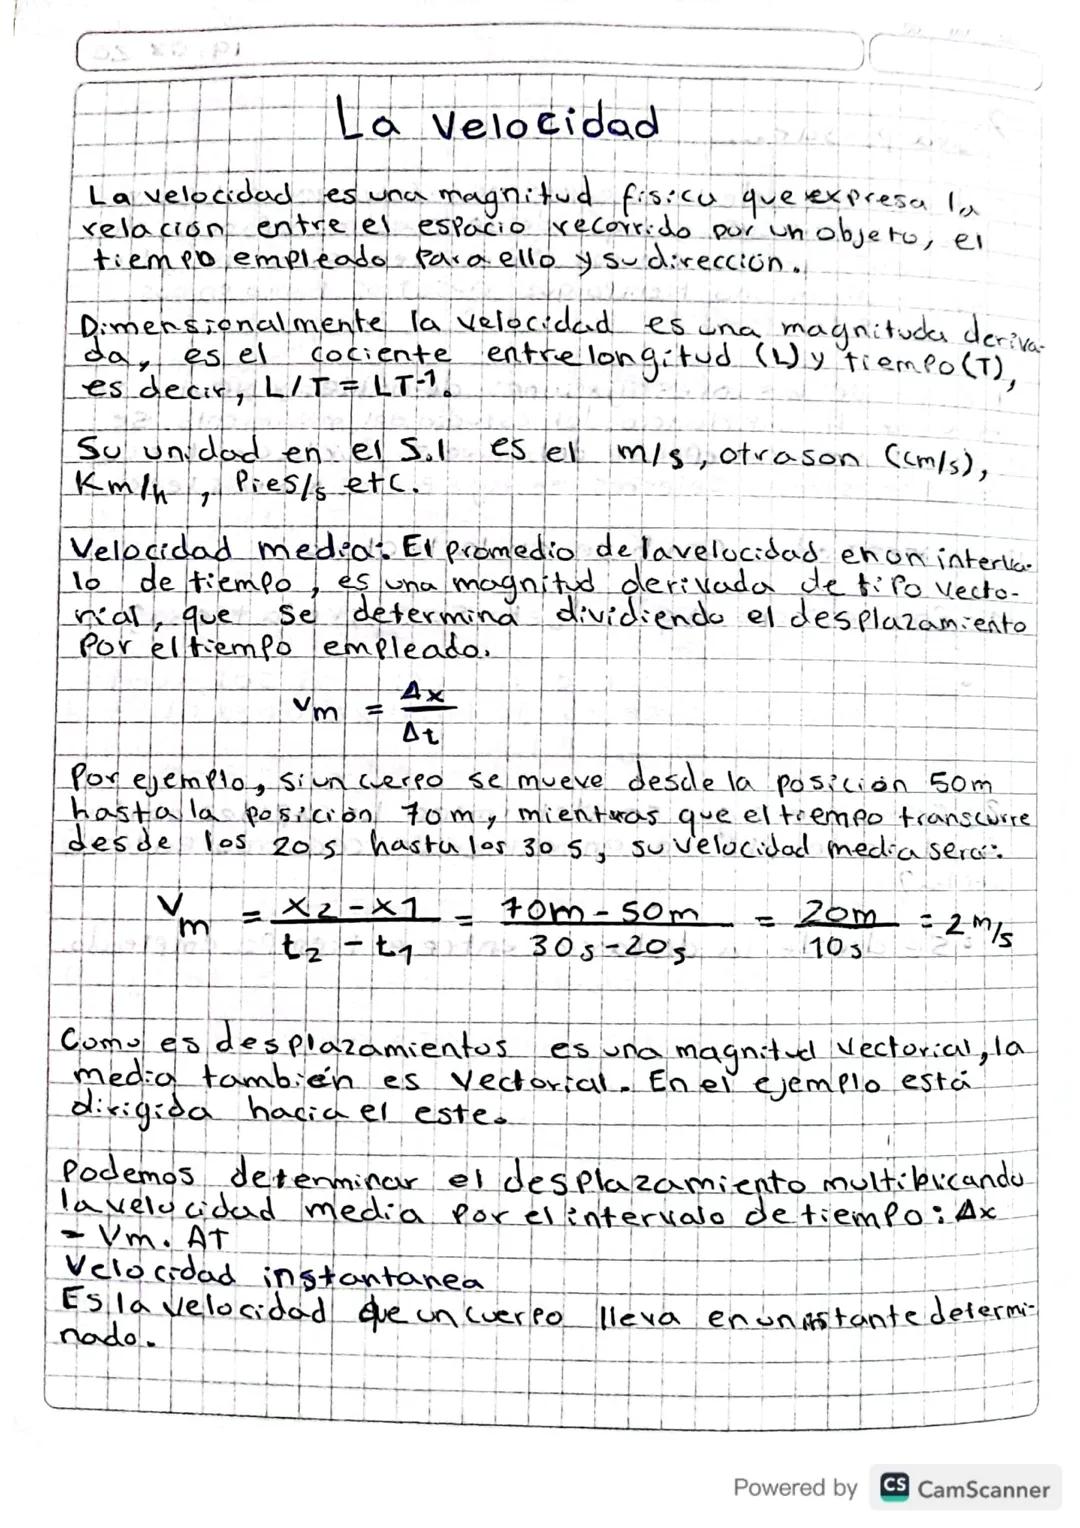 La velocidad
La velocidad es una magnitud física que expresa la
relación entre el espacio recorrido por un objeto, el
tiempo empleado para ello y su dirección.
Dimensionalmente la velocidad es una magnituda deriva-
da, es el cociente entre longitud (L) y tiempo (T),
es decir, L/T = LT-1.
Su unidad en el S.I es el m/s, otras son (cm/s),
Km/h, Pies/s etc.
Velocidad media: El promedio de la velocidad en un interva-
lo de tiempo, es una magnitud derivada de tipo vecto-
rial, que se determina dividiendo el desplazamiento
Por el tiempo empleado.
Vm = Δx/Δt
Por ejemplo, si un cuerpo se mueve desde la posición 50m
hasta la posición 70m, mientras que el tiempo transcurre
desde los 20 s hasta los 30 s, su velocidad media sera:
Vm = x2-x1/t2-t1 = 70m-50m/30s-20s = 20m/10s = 2 m/s
Como es desplazamientos es una magnitud vectorial, la
media también es vectorial. En el ejemplo está
dirigida hacia el este.
Podemos determinar el desplazamiento multiblicando
la velocidad media por el intervalo de tiempo: Δx
= Vm. ΔT
Velocidad instantanea
Es la velocidad que un cuerpo lleva en un instante determi-
nado.
Powered by CS CamScanner